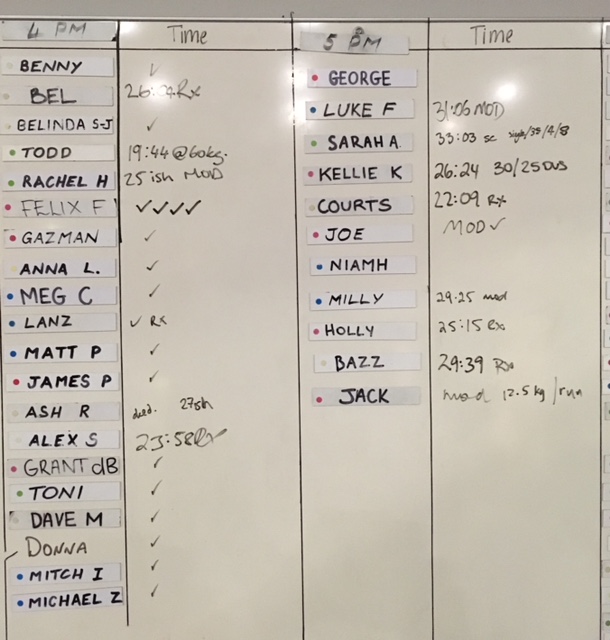 4 PM Time
BENNY ✓
BEL 26:09 Rx
BELINDA S-J ✓
TODD 19:44 @ 60kg.
RACHEL H 25 ish MOD
FELIX F ✓✓✓✓
GAZMAN ✓
ANNA L. ✓
MEG C ✓
LANZ ✓ RX
MATT P ✓
JAMES P ✓
ASH R died. 27ish
ALEX S 23:58 Rx
GRANT dB ✓
TONI ✓
DAVE M ✓
DONNA ✓
MITCH I ✓
MICHAEL Z ✓
5 PM Time
GEORGE
LUKE F 31:06 MOD
SARAH A 33:03 sc
KELLIE K 26:24 30/25 DUS
COURTS 22:09 Rx
JOE MOD ✓
NIAMH
MILLY 29:25 mod
HOLLY 25:15 Rx
BAZZ 29:39 Rx
JACK mod 12.5 kg / run